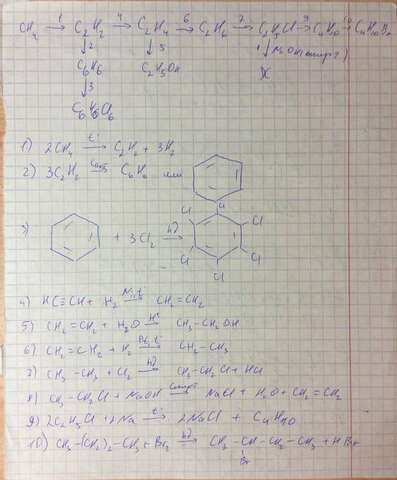 CH₄ →1 C₂H₂ →4 C₂H₄ →6 C₂H₆ →7 C₂H₅Cl →9 C₄H₁₀ →10 C₄H₉Br
↓2 ↓5 ↓ NaOH (спирт)
C₆H₆ C₂H₅OH X
↓3
C₆H₆Cl₆
1) 2CH₄ →t° C₂H₂ + 3H₂
2) 3C₂H₂ → C₆H₆ или
3) + 3Cl₂ →hλ Cl Cl Cl Cl Cl Cl
4) HC≡CH + H₂ →Ni,t CH₂=CH₂
5) CH₂=CH₂ + H₂O →H⁺ CH₃-CH₂OH
6) CH₂=CH₂ + H₂ → CH₃-CH₃
7) CH₃-CH₃ + Cl₂ →hλ CH₃-CH₂Cl + HCl
8) CH₃-CH₂Cl + NaOH →спирт NaCl + H₂O + CH₂=CH₂
9) 2C₂H₅Cl + 2Na →t° 2NaCl + C₄H₁₀
10) CH₃-(CH₂)₂-CH₃ + Br₂ →hλ CH₃-CH-CH₂-CH₃ + HBr
Br